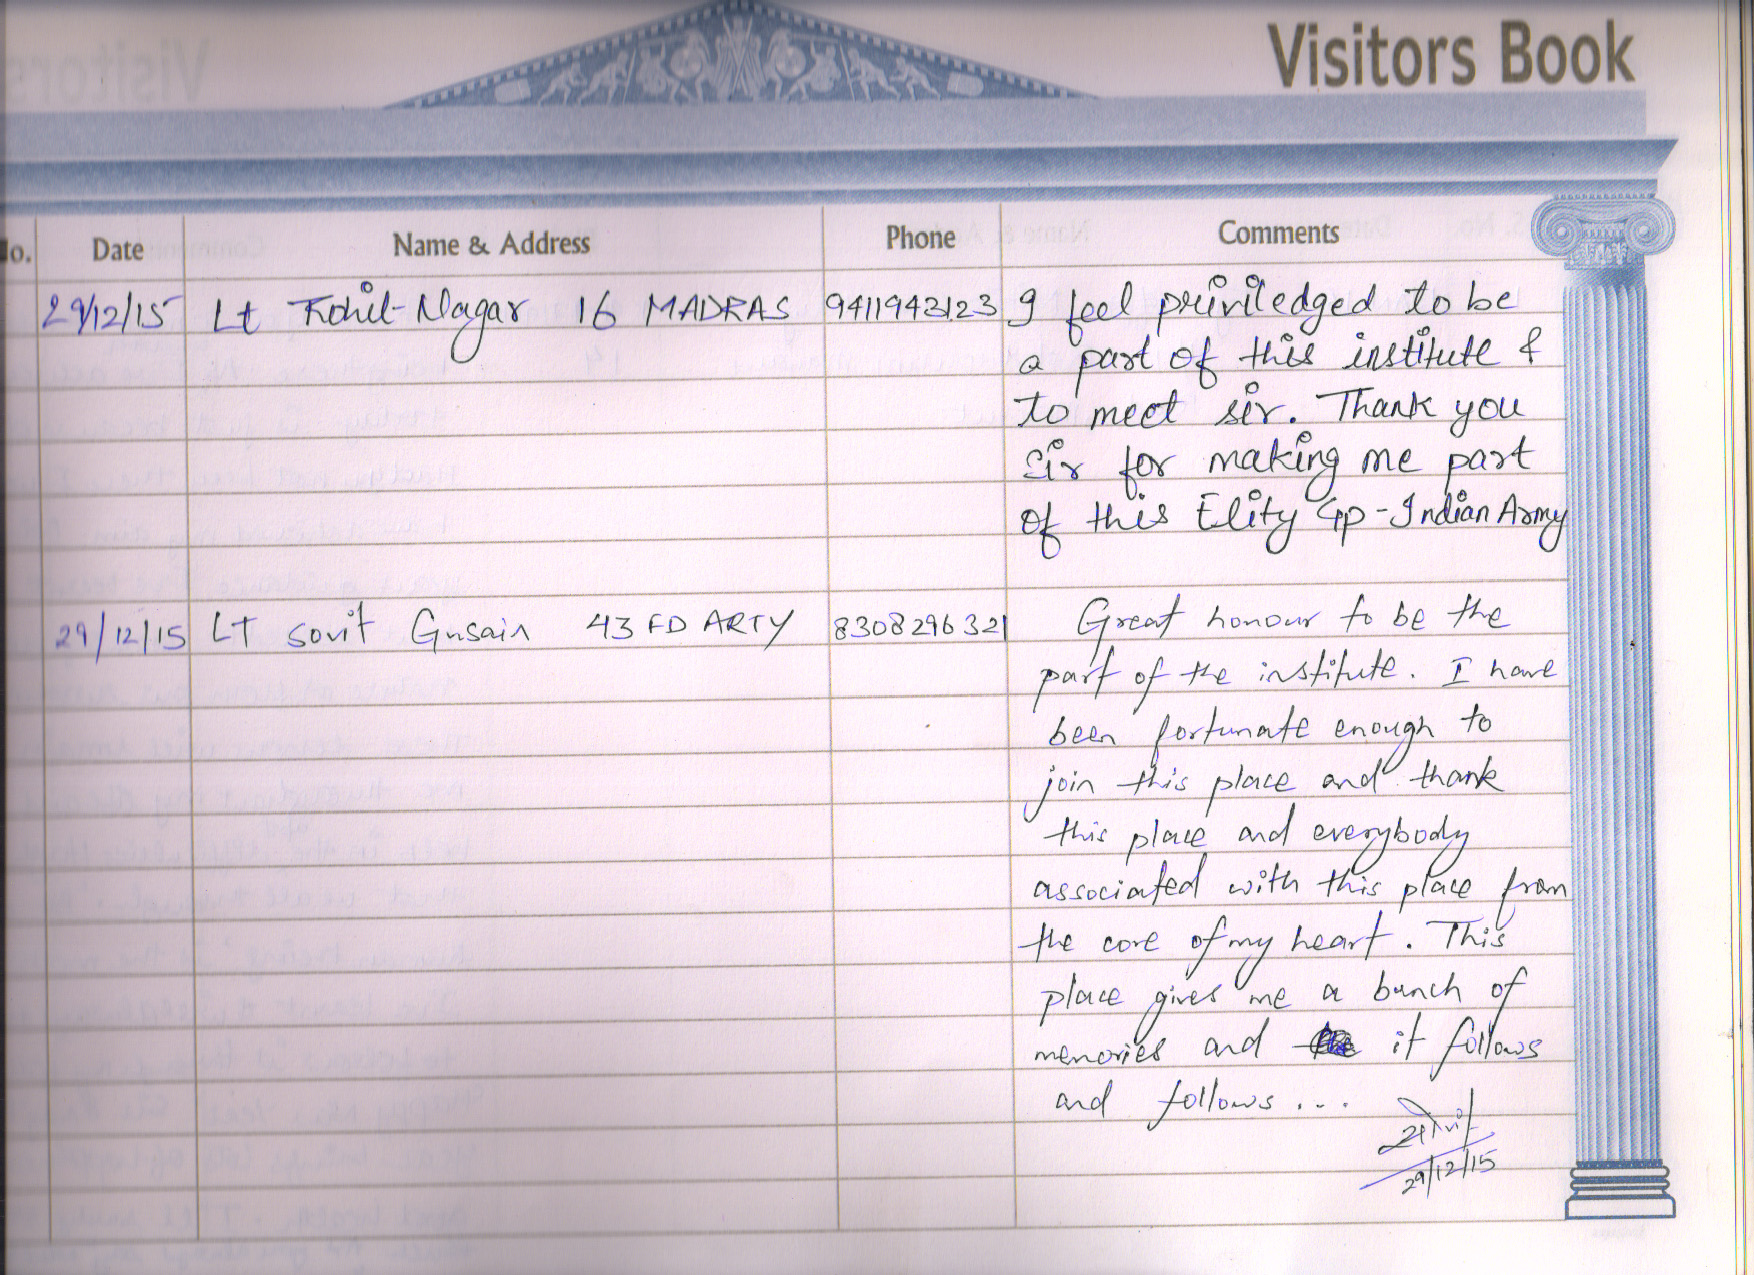 Visitors Book
No. Date Name & Address Phone Comments
29/12/15 Lt Rohit Nagar 16 MADRAS 9411943123 I feel priviledged to be
a part of this institute &
to meet sir. Thank you
Sir for making me part
of this Elity Gp - Indian Army
29/12/15 LT Sovit Gusain 43 FD ARTY 8308296321 Great honour to be the
part of the institute. I have
been fortunate enough to
join this place and thank
this place and everybody
associated with this place from
the core of my heart. This
place gives me a bunch of
memories and it follows
and follows ...
29/12/15